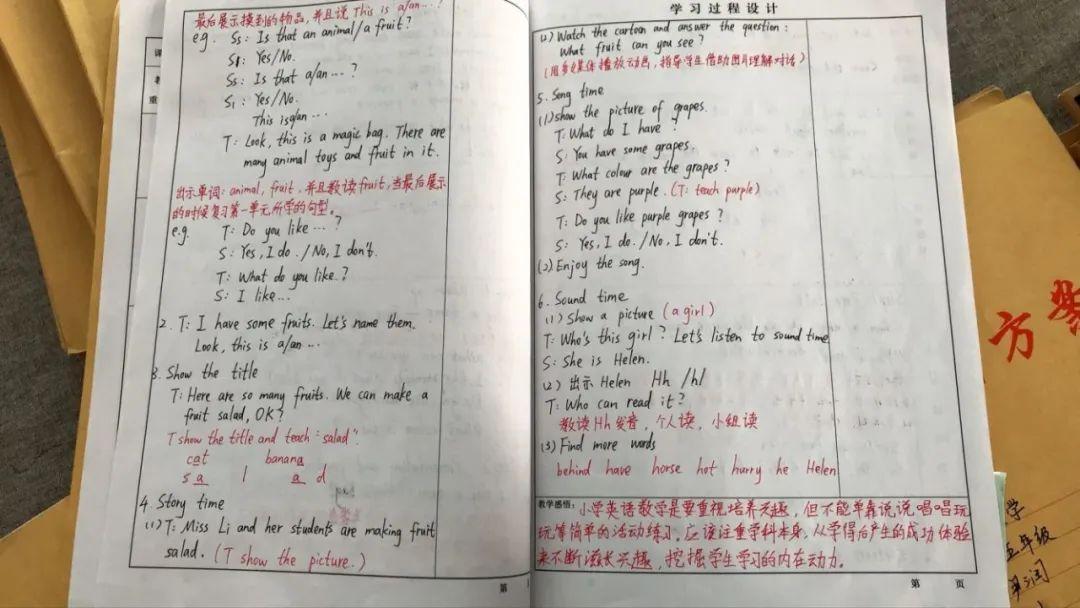 课
教
重
最后展示摸到的物品,并且说 This is a/an…?
e.g. Ss: Is that an animal/a fruit?
S1: Yes/No.
Ss: Is that a/an…?
S1: Yes/No.
This is a/an…
T: Look, this is a magic bag. There are
many animal toys and fruit in it.
出示单词: animal, fruit, 并且教读fruit,当最后展示
的时候复习第一单元所学的句型。
e.g. T: Do you like…?
S: Yes, I do. / No, I don't.
T: What do you like?
S: I like…
2. T: I have some fruits. Let's name them.
Look, this is a/an…
3. Show the title
T: Here are so many fruits. We can make a
fruit salad, OK?
T show the title and teach "salad".
cat banana
s a l a d
4. Story time
(1) T: Miss Li and her students are making fruit
salad. (T show the picture.)
第
学习过程设计
(2) Watch the cartoon and answer the question:
What fruit can you see?
(用多媒体播放动画,指导学生借助图片理解对话)
5. Song time
(1) show the picture of grapes.
T: What do I have?
S: You have some grapes.
T: What colour are the grapes?
S: They are purple. (T: teach purple)
T: Do you like purple grapes?
S: Yes, I do. / No, I don't.
(2) Enjoy the song.
6. Sound time
(1) Show a picture (a girl)
T: Who's this girl? Let's listen to sound time
S: She is Helen.
(2) 出示 Helen Hh /h/
T: Who can read it?
教读Hh发音,个人读,小组读
(3) Find more words
behind have horse hot hurry he Helen
教学感悟: 小学英语教学是要重视培养兴趣,但不能单靠说说唱唱玩
玩等简单的活动练习,应该注重学科本身,从学得后产生的成功体验
来不断滋长兴趣,挖掘学生学习的内在动力。
第 页
方案
学
五年级